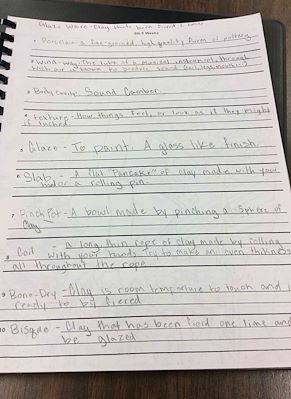 Glaze Ware - Clay that's been fired 2 times
Porcelain - a fine-grained, high quality form of pottery
Wind-way - The tube of a musical instrument, through
which air is blown to produce sound
3 Body Cavity: Sound Camber.
4 texture - How things feel, or look as if they might
if touched.
5 Glaze - To paint. A glass like finish.
6 Slab - A flat "Pancake" of clay made with your
hand or a rolling pin.
7 Pinch Pot - A bowl made by pinching a sphere of
Clay
8 Coil - a long, thin rope of clay made by rolling
with your hands. Try to make an even thickness
all throughout the rope
9 Bone-Dry - Clay is room temporture to touch and
ready to be fiered
10 Bisque - Clay that has been fierd one time and
be glazed